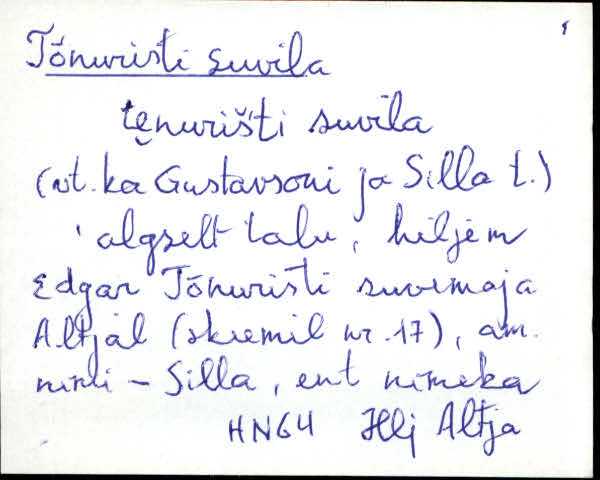 Tõnuristi suvila
te̮nurišti suvila
(vt. ka Gustavsoni ja Silla t.)
algselt talu, hiljem
Edgar Tõnuristi suvemaja
Altjal (skeemil nr. 17), am.
nimi - Silla, ent nimeka
HN64 Hlj Altja